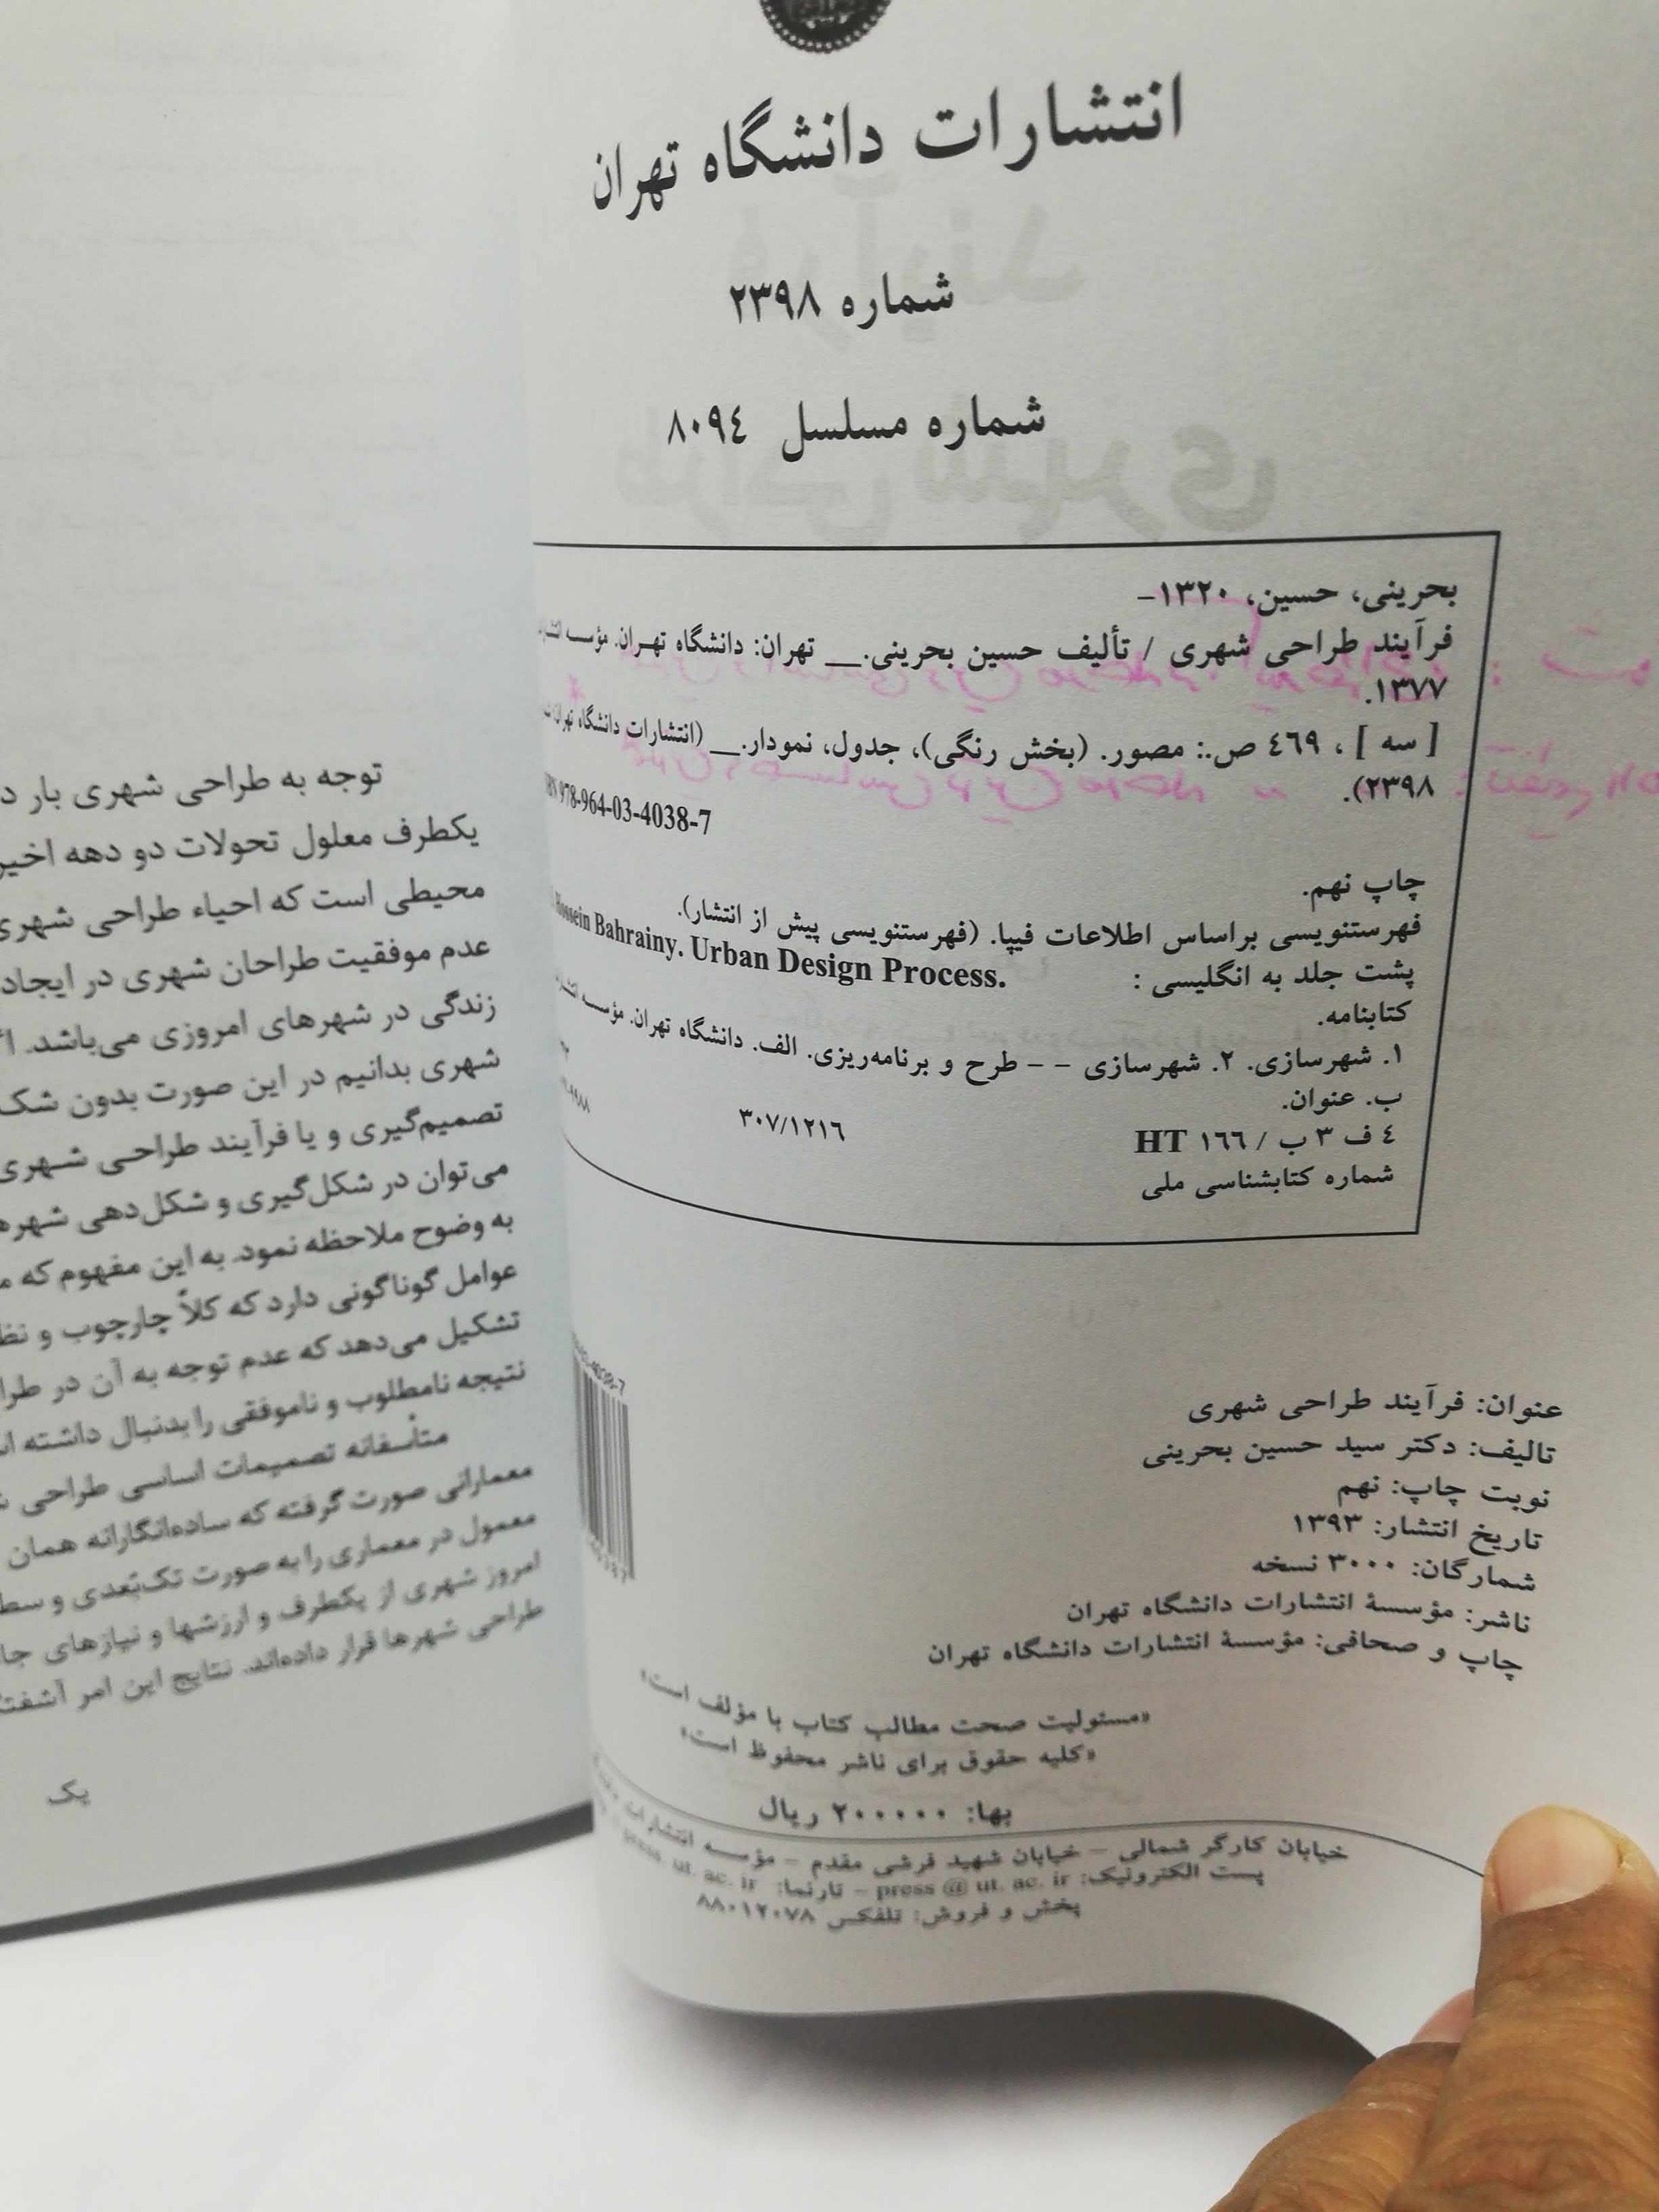 انتشارات دانشگاه تهران
شماره ۲۳۹۸
شماره مسلسل ۸۰۹٤
بحرینی، حسین، ۱۳۲۰-
فرآیند طراحی شهری / تألیف حسین بحرینی.__ تهران: دانشگاه تهران. مؤسسه
۱۳۷۷.
[ سه ] ، ٤٦٩ ص.: مصور. (بخش رنگی)، جدول، نمودار.__ (انتشارات دانشگاه تهران؛
۲۳۹۸).
978-964-03-4038-7
چاپ نهم.
فهرستنویسی براساس اطلاعات فیپا. (فهرستنویسی پیش از انتشار).
پشت جلد به انگلیسی : Hossein Bahrainy. Urban Design Process.
کتابنامه.
۱. شهرسازی. ۲. شهرسازی - - طرح و برنامه‌ریزی. الف. دانشگاه تهران. مؤسسه
ب. عنوان.
٤ ف ۳ ب / ۱٦٦ HT ۳۰۷/۱۲۱٦
شماره کتابشناسی ملی
عنوان: فرآیند طراحی شهری
تالیف: دکتر سید حسین بحرینی
نوبت چاپ: نهم
تاریخ انتشار: ۱۳۹۳
شمارگان: ۳۰۰۰ نسخه
ناشر: مؤسسۀ انتشارات دانشگاه تهران
چاپ و صحافی: مؤسسۀ انتشارات دانشگاه تهران
«مسئولیت صحت مطالب کتاب با مؤلف است»
«کلیه حقوق برای ناشر محفوظ است»
بها: ۲۰۰۰۰۰ ریال
خیابان کارگر شمالی - خیابان شهید فرشی مقدم - مؤسسه انتشارات
پست الکترونیک: press @ ut. ac. ir - تارنما: press. ut. ac. ir
پخش و فروش: تلفکس ۸۸۰۱۲۰۷۸
توجه به طراحی شهری بار
یکطرف معلول تحولات دو دهه اخیر
محیطی است که احیاء طراحی شهری
عدم موفقیت طراحان شهری در ایجاد
زندگی در شهرهای امروزی می‌باشد.
شهری بدانیم در این صورت بدون شک
تصمیم‌گیری و یا فرآیند طراحی شهری
می‌توان در شکل‌گیری و شکل‌دهی
به وضوح ملاحظه نمود. به این مفهوم که
عوامل گوناگونی دارد که کلاً چارچوب و
تشکیل می‌دهد که عدم توجه به آن در
نتیجه نامطلوب و ناموفقی را بدنبال داشته
متأسفانه تصمیمات اساسی طراحی
معمارانی صورت گرفته که ساده‌انگارانه همان
معمول در معماری را به صورت تک‌بُعدی و
امروز شهری از یکطرف و ارزشها و نیازهای
طراحی شهرها قرار داده‌اند. نتایج این امر
یک